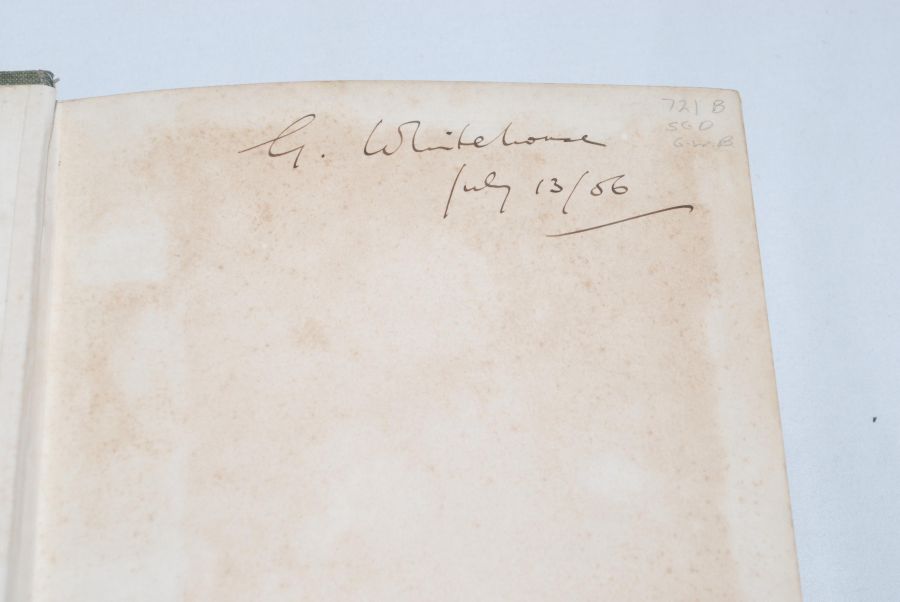 G. Whitehouse
July 13/56
721 B
SGD
G.W.B.